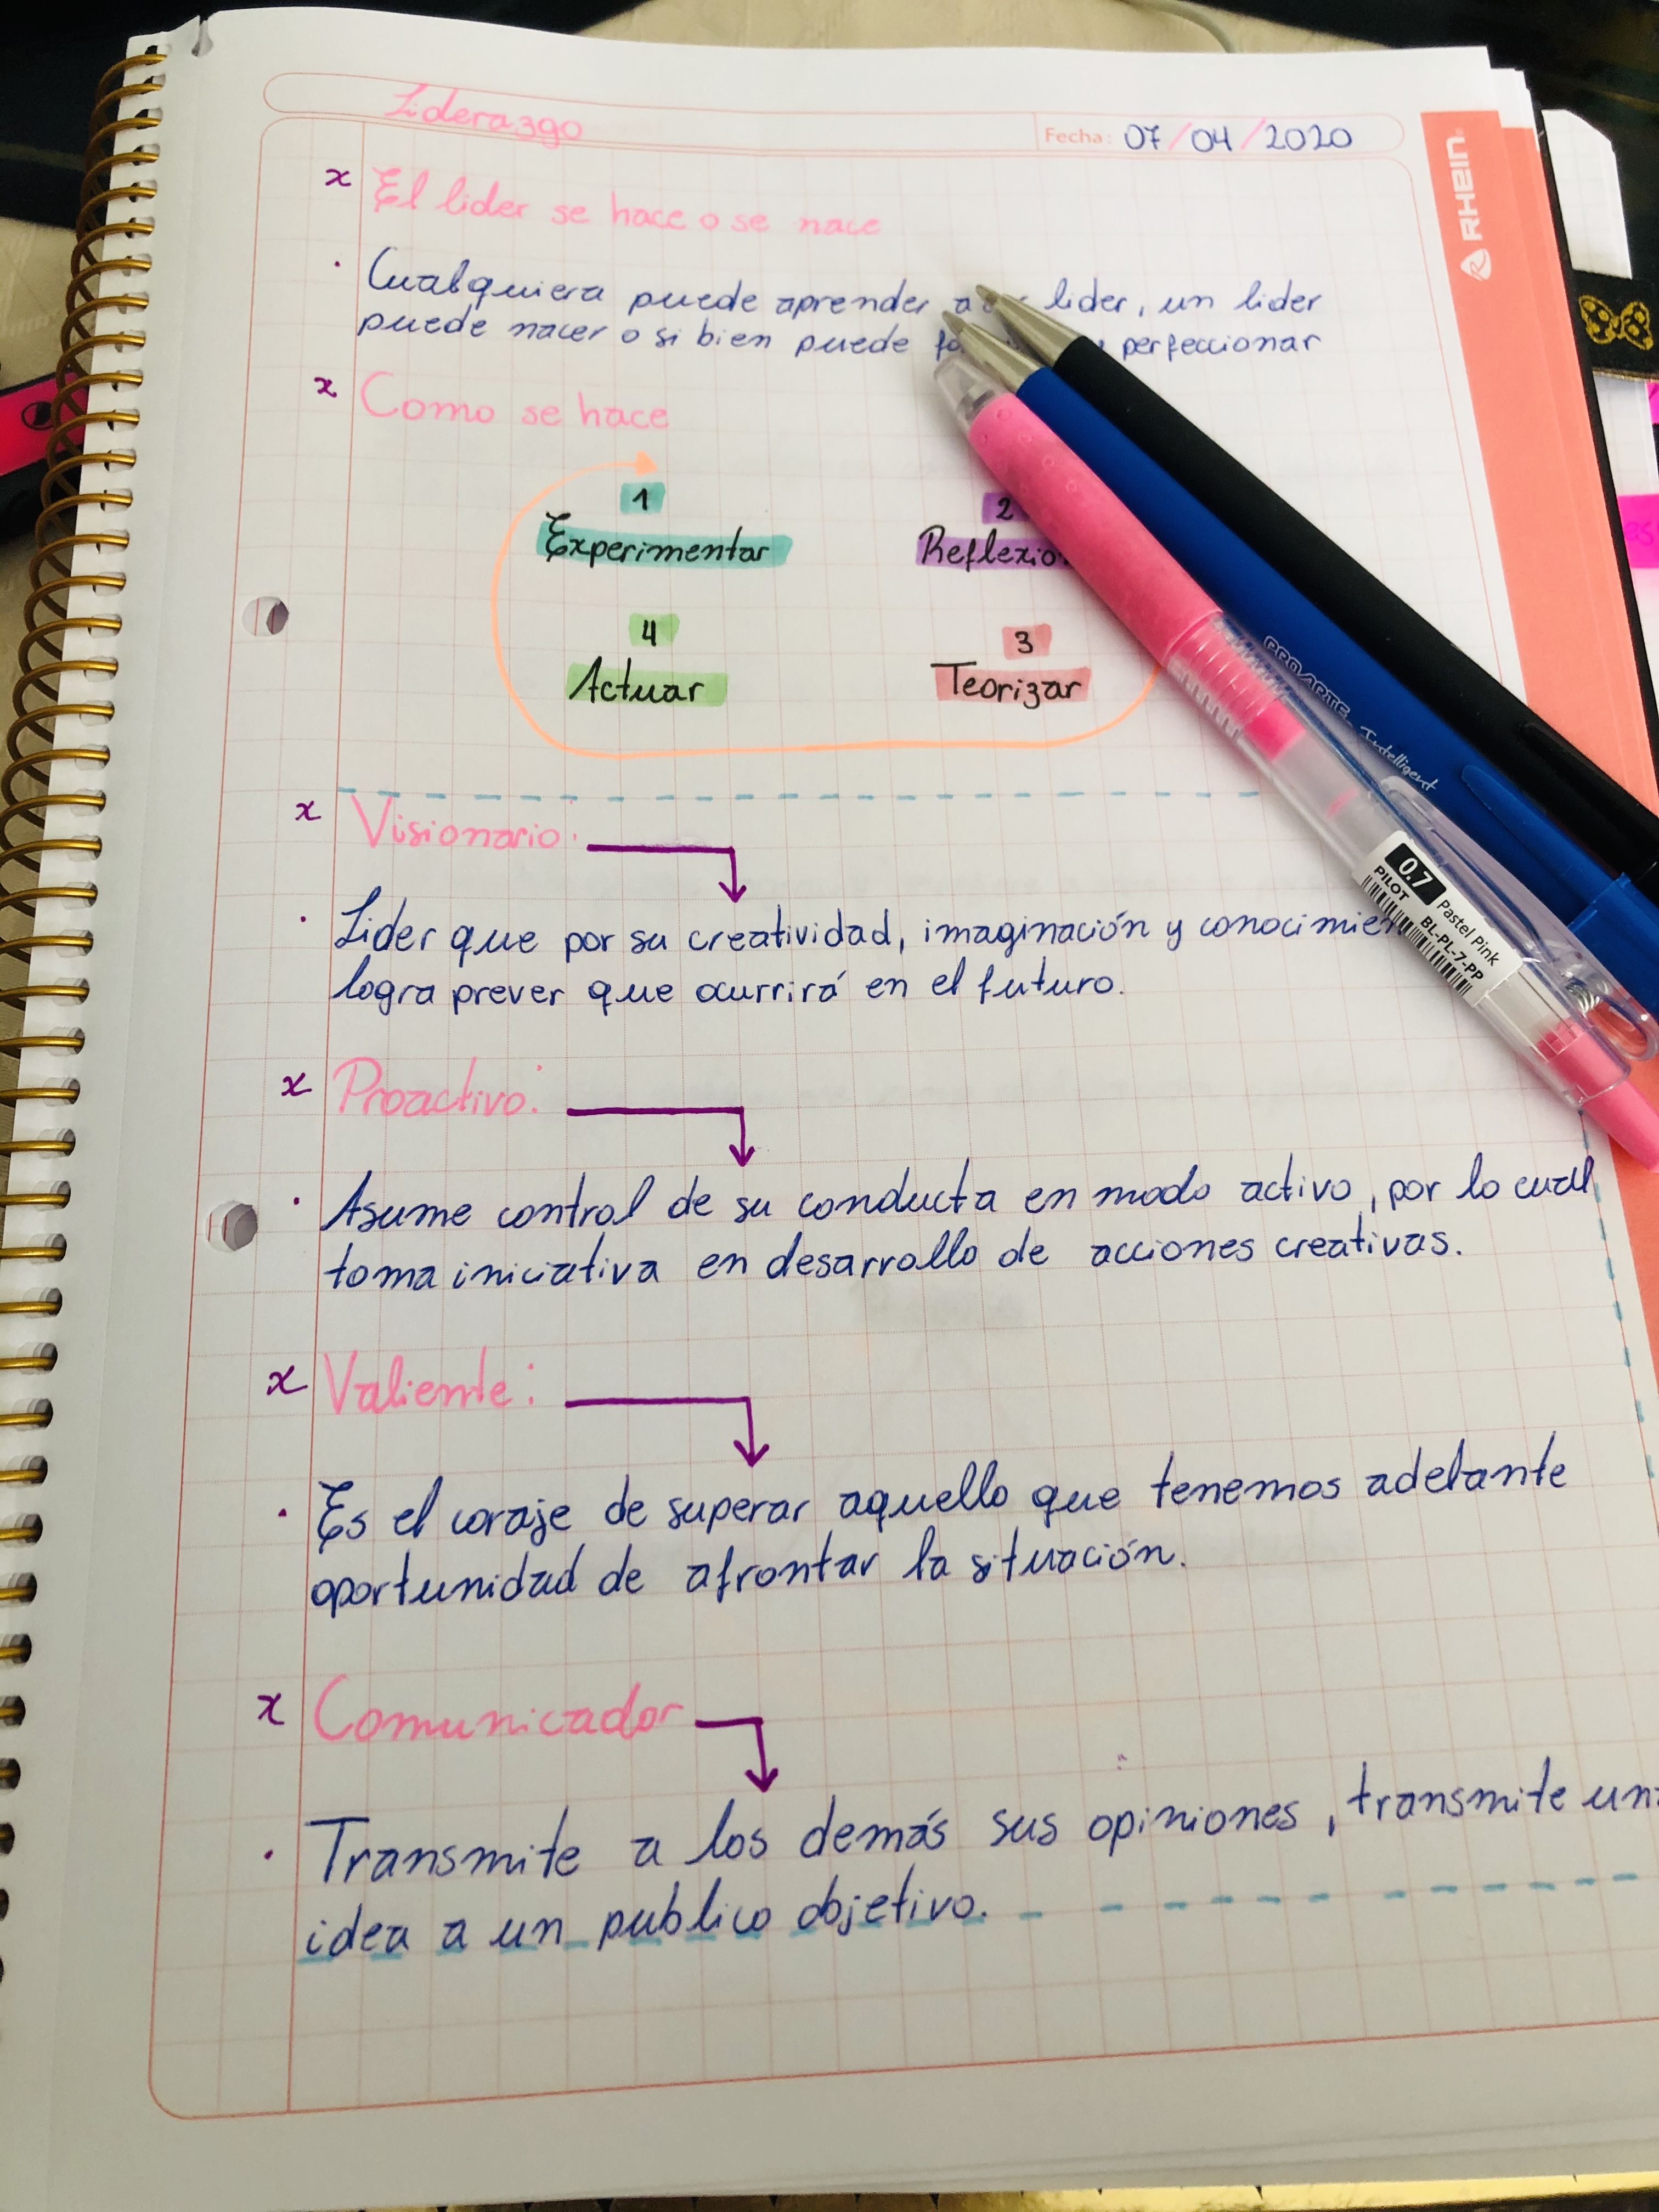 Liderazgo
Fecha: 07/04/2020
RHEIN
x El lider se hace o se nace
· Cualquiera puede aprender a lider, un lider
puede nacer o si bien puede perfeccionar
x Como se hace
1 2
Experimentar
4 3
Actuar Teorizar
x Visionario:
· Lider que por su creatividad, imaginación y
logra prever que ocurrirá en el futuro.
x Proactivo:
· Asume control de su conducta en modo activo, por lo cual
toma iniciativa en desarrollo de acciones creativas.
x Valiente:
· Es el coraje de superar aquello que tenemos adelante
oportunidad de afrontar la situación.
x Comunicador
· Transmite a los demás sus opiniones, transmite
idea a un publico objetivo.
PROARTE Intelligent
0.7 Pastel Pink
PILOT BL-PL-7-PP